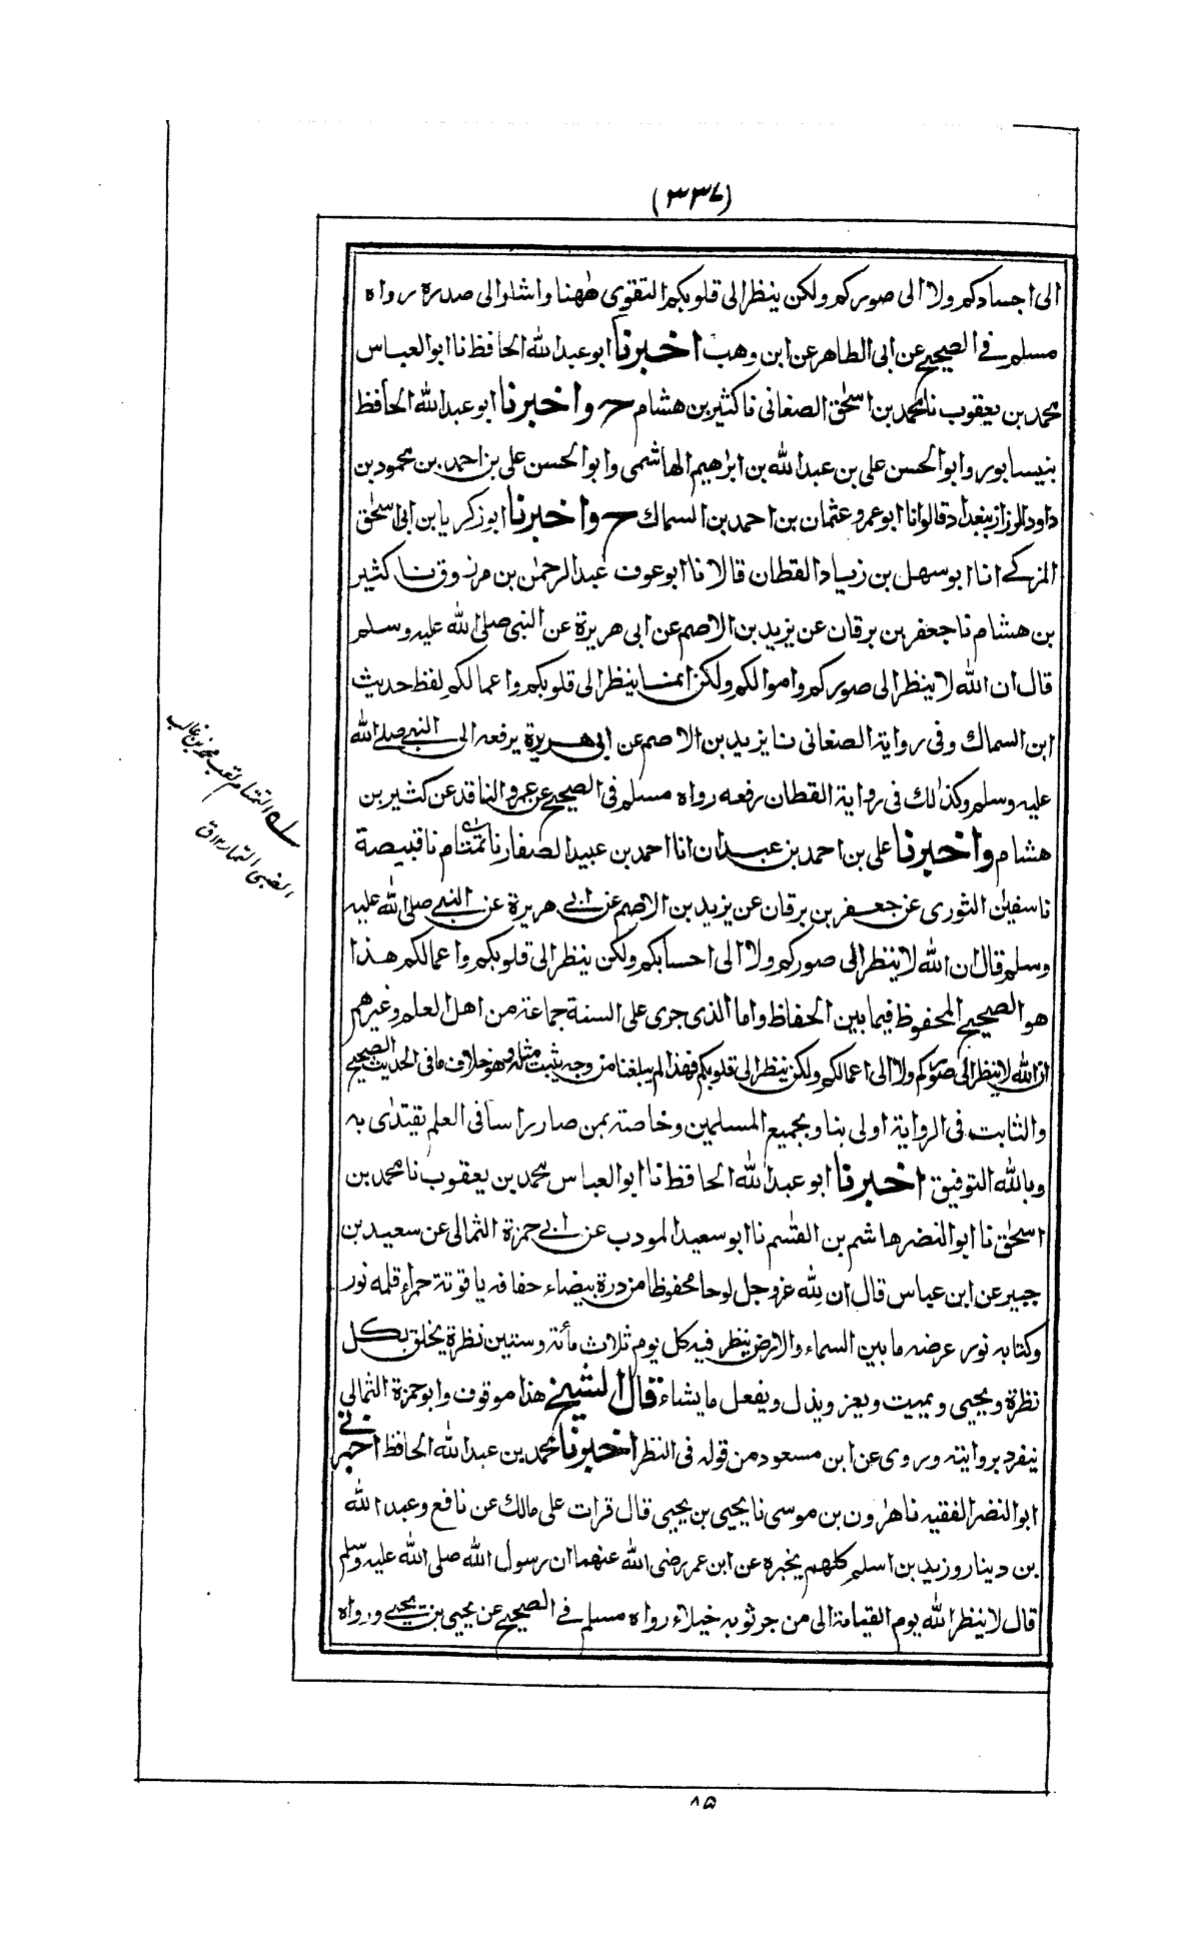 (۳۳۷)
الى اجسادكم ولا الى صوركم ولكن ينظر الى قلوبكم التقوى ههنا واشار الى صدره رواه
مسلم في الصحيح عن ابى الطاهر عن ابن وهب اخبرنا ابو عبد الله الحافظ نا ابو العباس
محمد بن يعقوب نا محمد بن اسحٰق الصغانى نا كثير بن هشام ح واخبرنا ابو عبد الله الحافظ
بنيسابور وابو الحسن على بن عبد الله بن ابرٰهيم الهاشمى وابو الحسن على بن احمد بن محمود بن
داود الرزاز ببغداد قالوا نا ابو عمرو عثمان بن احمد بن السماك ح واخبرنا ابو زكريا بن ابى اسحٰق
المزكے انا ابو سهل بن زياد القطان قالا نا ابو عوف عبد الرحمٰن بن مرزوق نا كثير
بن هشام نا جعفر بن برقان عن يزيد بن الاصم عن ابى هريرة عن النبى صلى الله عليه وسلم
قال ان الله لا ينظر الى صوركم واموالكم ولكن انما ينظر الى قلوبكم واعمالكم لفظ حديث
ابن السماك وفى رواية الصغانى نا يزيد بن الاصم عن ابى هريرة يرفعه الى النبي صلى الله
عليه وسلم وكذلك فى رواية القطان رفعه رواه مسلم فى الصحيح عن عمرو الناقد عن كثير بن
هشام واخبرنا على بن احمد بن عبدان انا احمد بن عبيد الصفار نا تمتام نا قبيصة
نا سفيٰن الثورى عن جعفر بن برقان عن يزيد بن الاصم عن ابى هريرة عن النبي صلى الله عليه
وسلم قال ان الله لا ينظر الى صوركم ولا الى احسابكم ولكن ينظر الى قلوبكم واعمالكم هذا
هو الصحيح المحفوظ فيما بين الحفاظ واما الذى جرى على السنة جماعة من اهل العلم وغيرهم
ان الله لا ينظر الى صوركم ولا الى اعمالكم ولكن ينظر الى قلوبكم فهذا لم يبلغنا من وجه يثبت مثله وهو خلاف ما فى الحديث الصحيح
والثابت فى الرواية اولى بنا وبجميع المسلمين وخاصة بمن صار راسا فى العلم يقتدٰى به
وبالله التوفيق اخبرنا ابو عبد الله الحافظ نا ابو العباس محمد بن يعقوب نا محمد بن
اسحٰق نا ابو النضر هاشم بن القٰسم نا ابو سعيد المودب عن ابى حمزة الثمالى عن سعيد بن
جبير عن ابن عباس قال ان لله عزوجل لوحا محفوظا من درة بيضاء حفافه ياقوتة حمراء قلمه نور
وكتابه نور عرضه ما بين السماء والارض ينظر فيه كل يوم ثلاث مائة وستين نظرة يخلق بكل
نظرة ويحيى ويميت ويعز ويذل ويفعل ما يشاء قال الشيخ هذا موقوف وابو حمزة الثمالى
ينفرد بروايته وروى عن ابن مسعود من قوله فى النظر اخبرنا محمد بن عبد الله الحافظ اخبرنى
ابو النضر الفقيه نا هٰرون بن موسى نا يحيى بن يحيى قال قرات على مالك عن نافع وعبد الله
بن دينار وزيد بن اسلم كلهم يخبره عن ابن عمر رضى الله عنهما ان رسول الله صلى الله عليه وسلم
قال لا ينظر الله يوم القيامة الى من جر ثوبه خيلاء رواه مسلم في الصحيح عن يحيى بن يحيى ورواه
له التمتام لقب محمد بن غالب
الضبى التمار ١٢ ق
۸۵